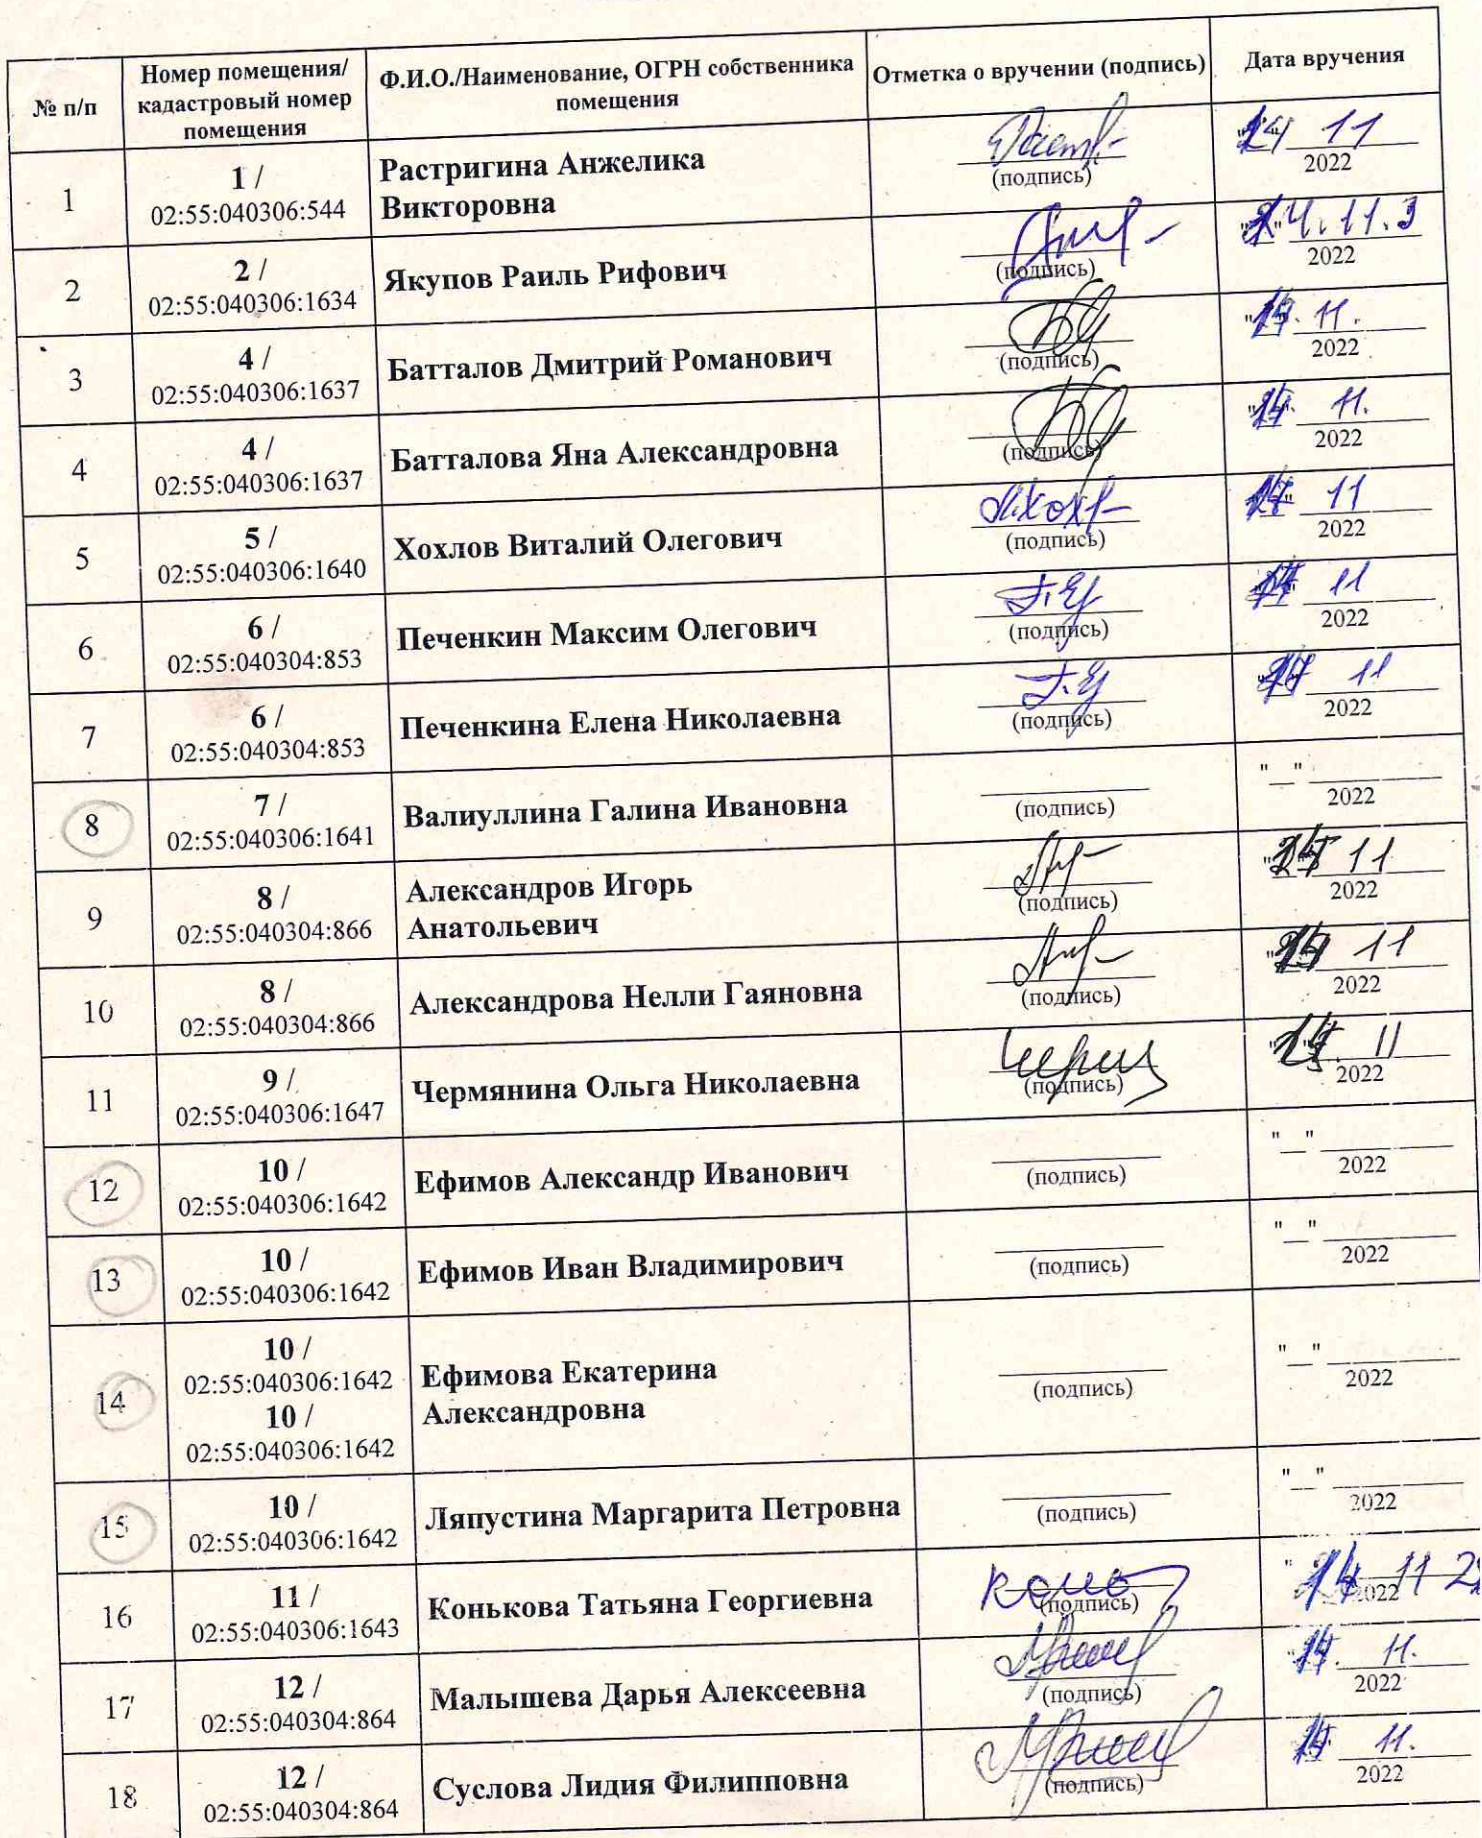 № п/п
Номер помещения/
кадастровый номер
помещения
Ф.И.О./Наименование, ОГРН собственника
помещения
Отметка о вручении (подпись)
Дата вручения
1
1 /
02:55:040306:544
Растригина Анжелика
Викторовна
(подпись)
11
2022
2
2 /
02:55:040306:1634
Якупов Раиль Рифович
(подпись)
11.
2022
3
4 /
02:55:040306:1637
Батталов Дмитрий Романович
(подпись)
11.
2022
4
4 /
02:55:040306:1637
Батталова Яна Александровна
(подпись)
11.
2022
5
5 /
02:55:040306:1640
Хохлов Виталий Олегович
(подпись)
11
2022
6
6 /
02:55:040304:853
Печенкин Максим Олегович
(подпись)
11
2022
7
6 /
02:55:040304:853
Печенкина Елена Николаевна
(подпись)
11
2022
8
7 /
02:55:040306:1641
Валиуллина Галина Ивановна
(подпись)
"__" ________
2022
9
8 /
02:55:040304:866
Александров Игорь
Анатольевич
(подпись)
11
2022
10
8 /
02:55:040304:866
Александрова Нелли Гаяновна
(подпись)
11
2022
11
9 /
02:55:040306:1647
Чермянина Ольга Николаевна
(подпись)
11
2022
12
10 /
02:55:040306:1642
Ефимов Александр Иванович
(подпись)
"__" ________
2022
13
10 /
02:55:040306:1642
Ефимов Иван Владимирович
(подпись)
"__" ________
2022
14
10 /
02:55:040306:1642
10 /
02:55:040306:1642
Ефимова Екатерина
Александровна
(подпись)
"__" ________
2022
15
10 /
02:55:040306:1642
Ляпустина Маргарита Петровна
(подпись)
"__" ________
2022
16
11 /
02:55:040306:1643
Конькова Татьяна Георгиевна
(подпись)
14 11
2022
17
12 /
02:55:040304:864
Малышева Дарья Алексеевна
(подпись)
11.
2022
18
12 /
02:55:040304:864
Суслова Лидия Филипповна
(подпись)
11.
2022